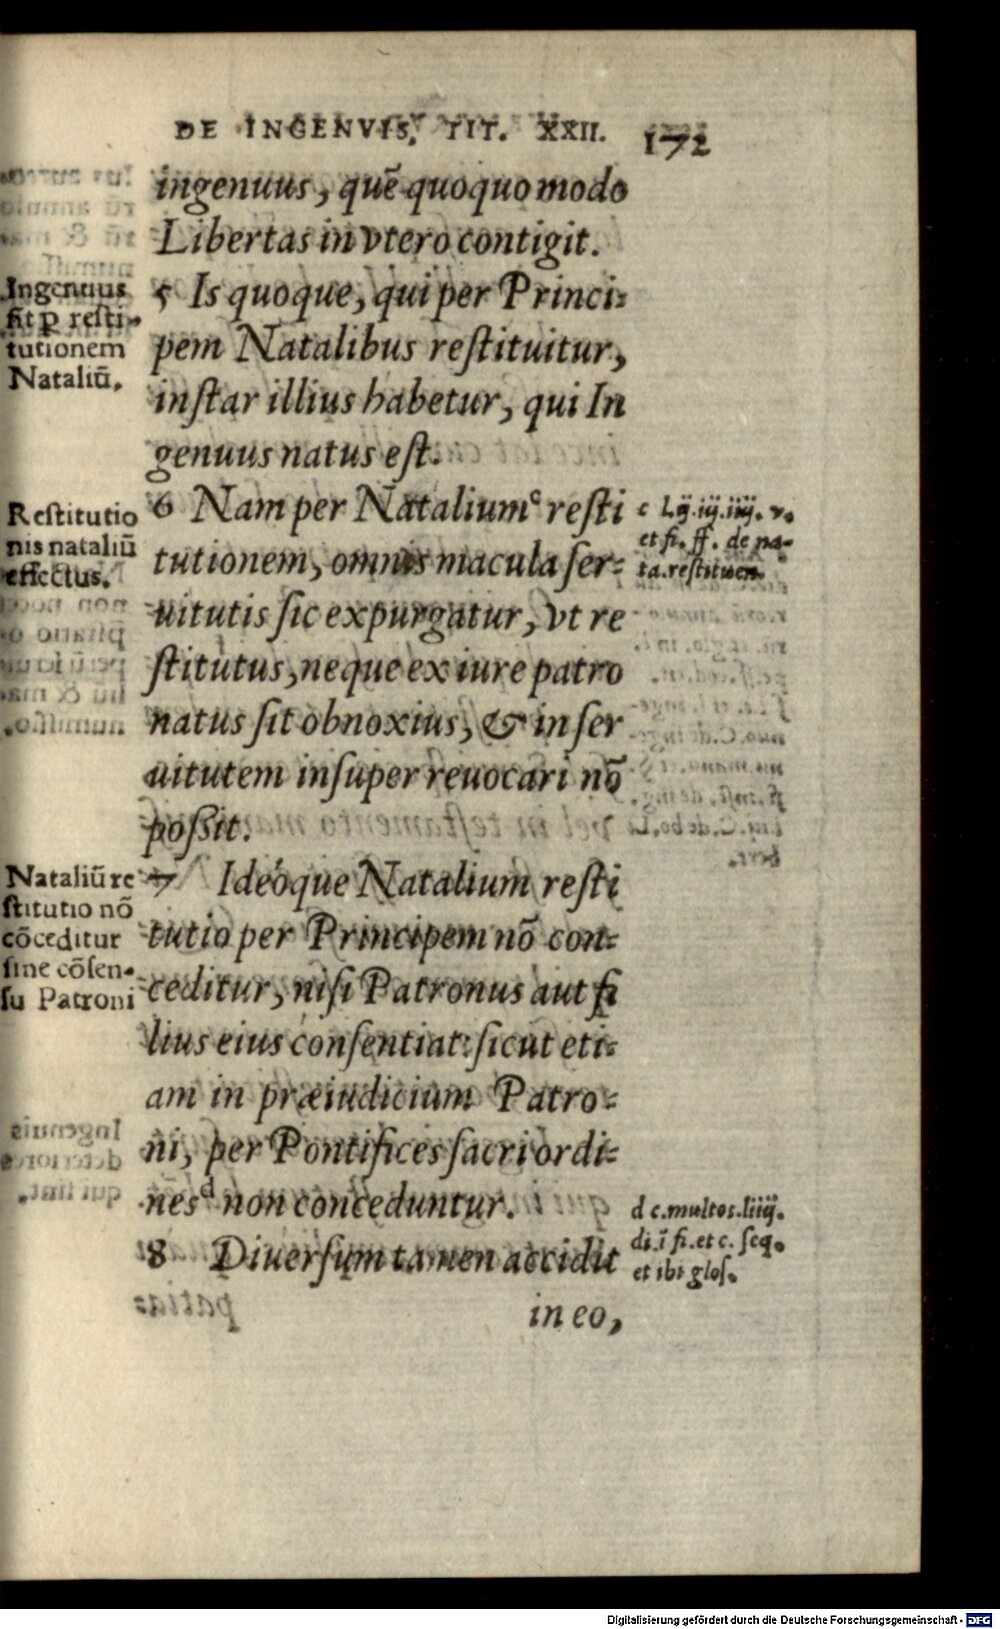 DE INGENVIS, TIT. XXII. 172
ingenuus, quē quoquo modo
Libertas in vtero contigit.
Ingenuus
fit ꝑ resti-
tutionem
Nataliū.
5 Is quoque, qui per Princi=
pem Natalibus reſtituitur,
inſtar illius habetur, qui In
genuus natus eſt.
Reſtitutio
nis nataliū
effectus.
6 Nam per Natalium c reſti
tutionem, omnis macula ſer=
uitutis ſic expurgatur, vt re
ſtitutus, neque ex iure patro
natus ſit obnoxius, & in ſer
uitutem inſuper reuocari nō
poſſit.
c l.ij.iij.iiij. v.
et fi. ff. de na-
ta.reſtituen.
Nataliū re
ſtitutio nō
cōceditur
ſine cōſen-
ſu Patroni
7 Ideóque Natalium reſti
tutio per Principem nō con=
ceditur, niſi Patronus aut fi
lius eius conſentiat: ſicut eti=
am in præiudicium Patro=
ni, per Pontifices ſacri ordi=
nes d non conceduntur.
8 Diuerſum tamen accidit
in eo,
d c.multos.liiij.
di.ī fi.et c. ſeq.
et ibi gloſ.
Digitalisierung gefördert durch die Deutsche Forschungsgemeinschaft - DFG